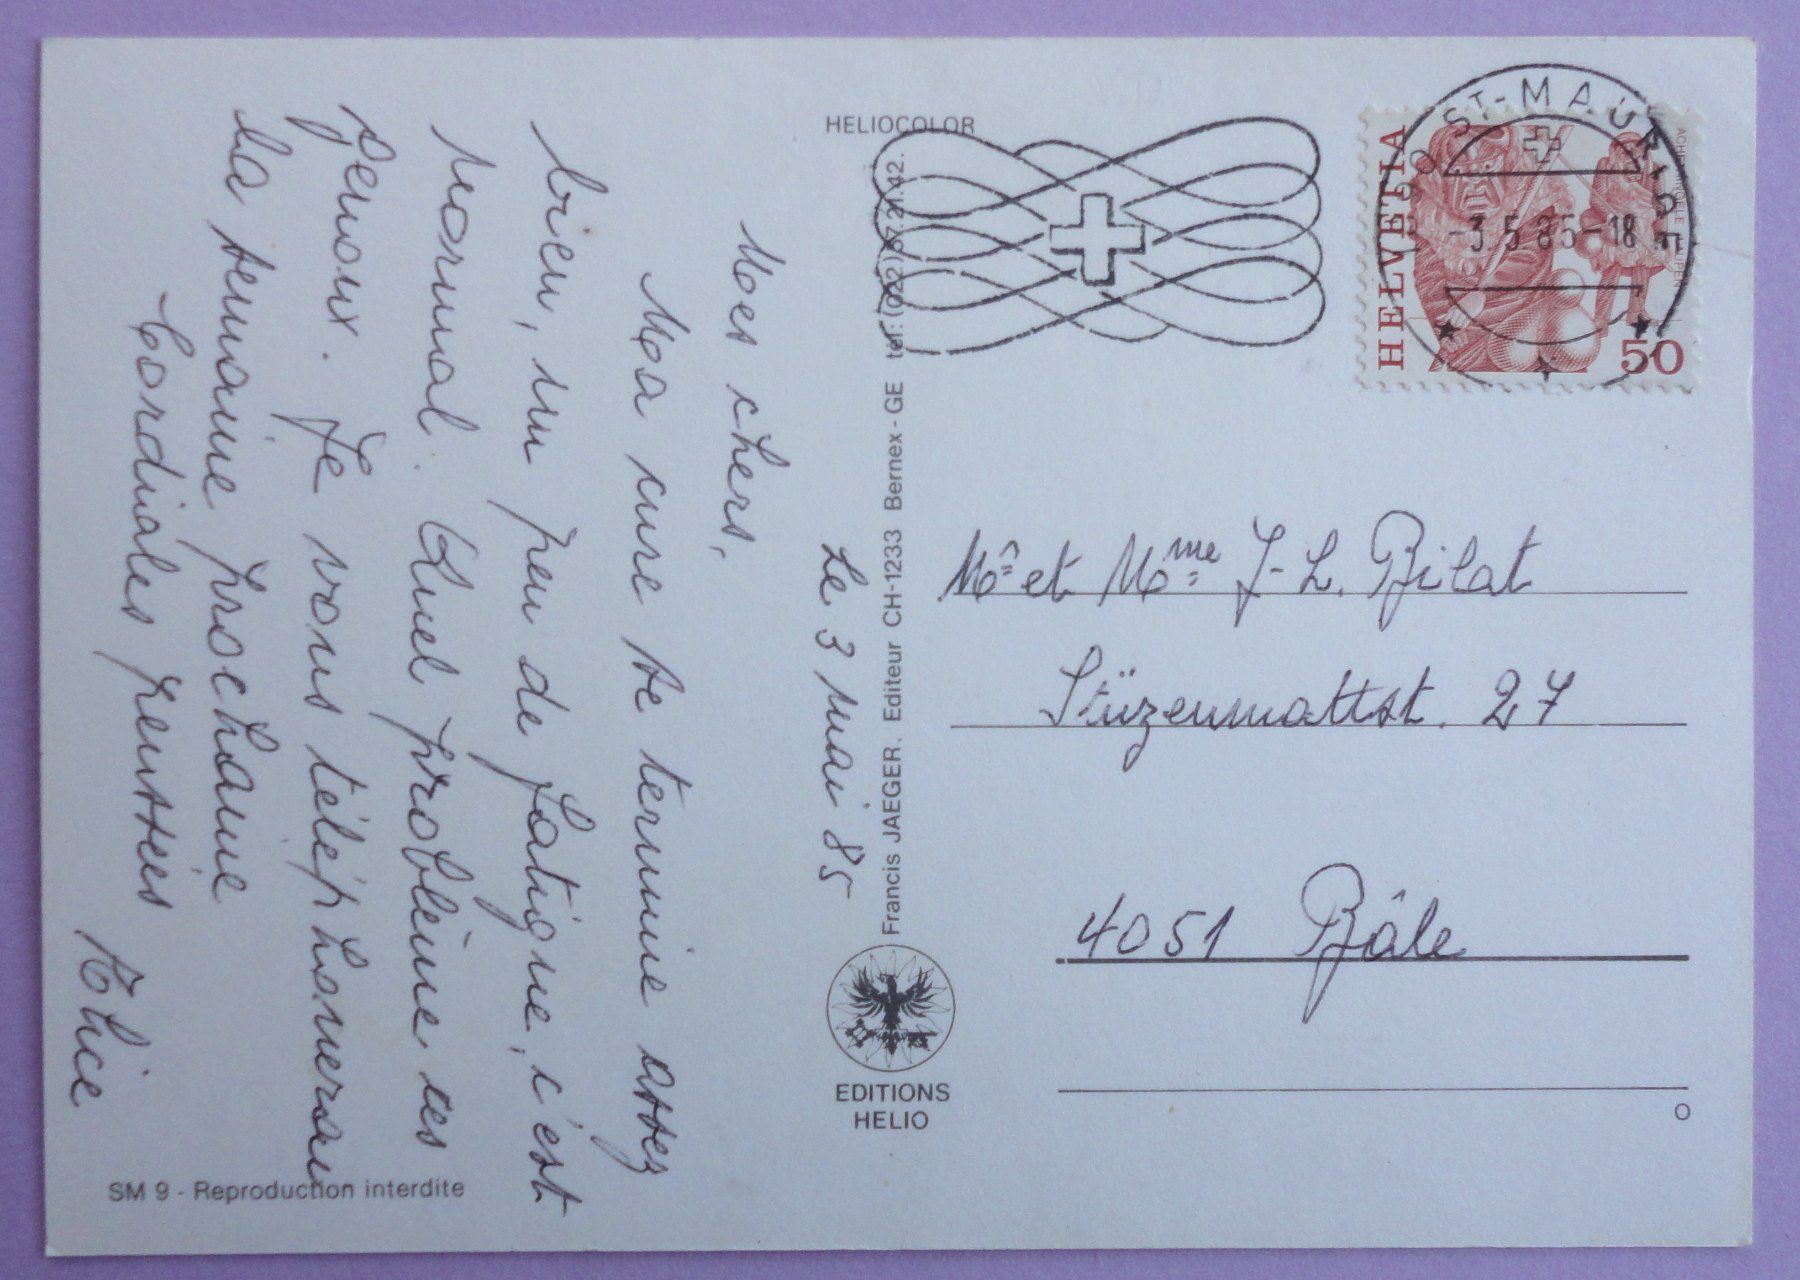 Le 3 mai 85
Mes chers,
Ma cure se termine assez
bien, un peu de fatigue, c'est
normal. Quel problème ces
genoux. Je vous téléphonerai
la semaine prochaine
Cordiales pensées
Alice
HELIOCOLOR
Francis JAEGER. Editeur CH-1233 Bernex - GE tél: (022) 57.21.42.
EDITIONS
HELIO
SM 9 - Reproduction interdite
ST-MAURICE
-3.5.85-18
HELVETIA
50
Mr et Mme J-L. Bilat
Stüzenmattst. 27
4051 Bâle